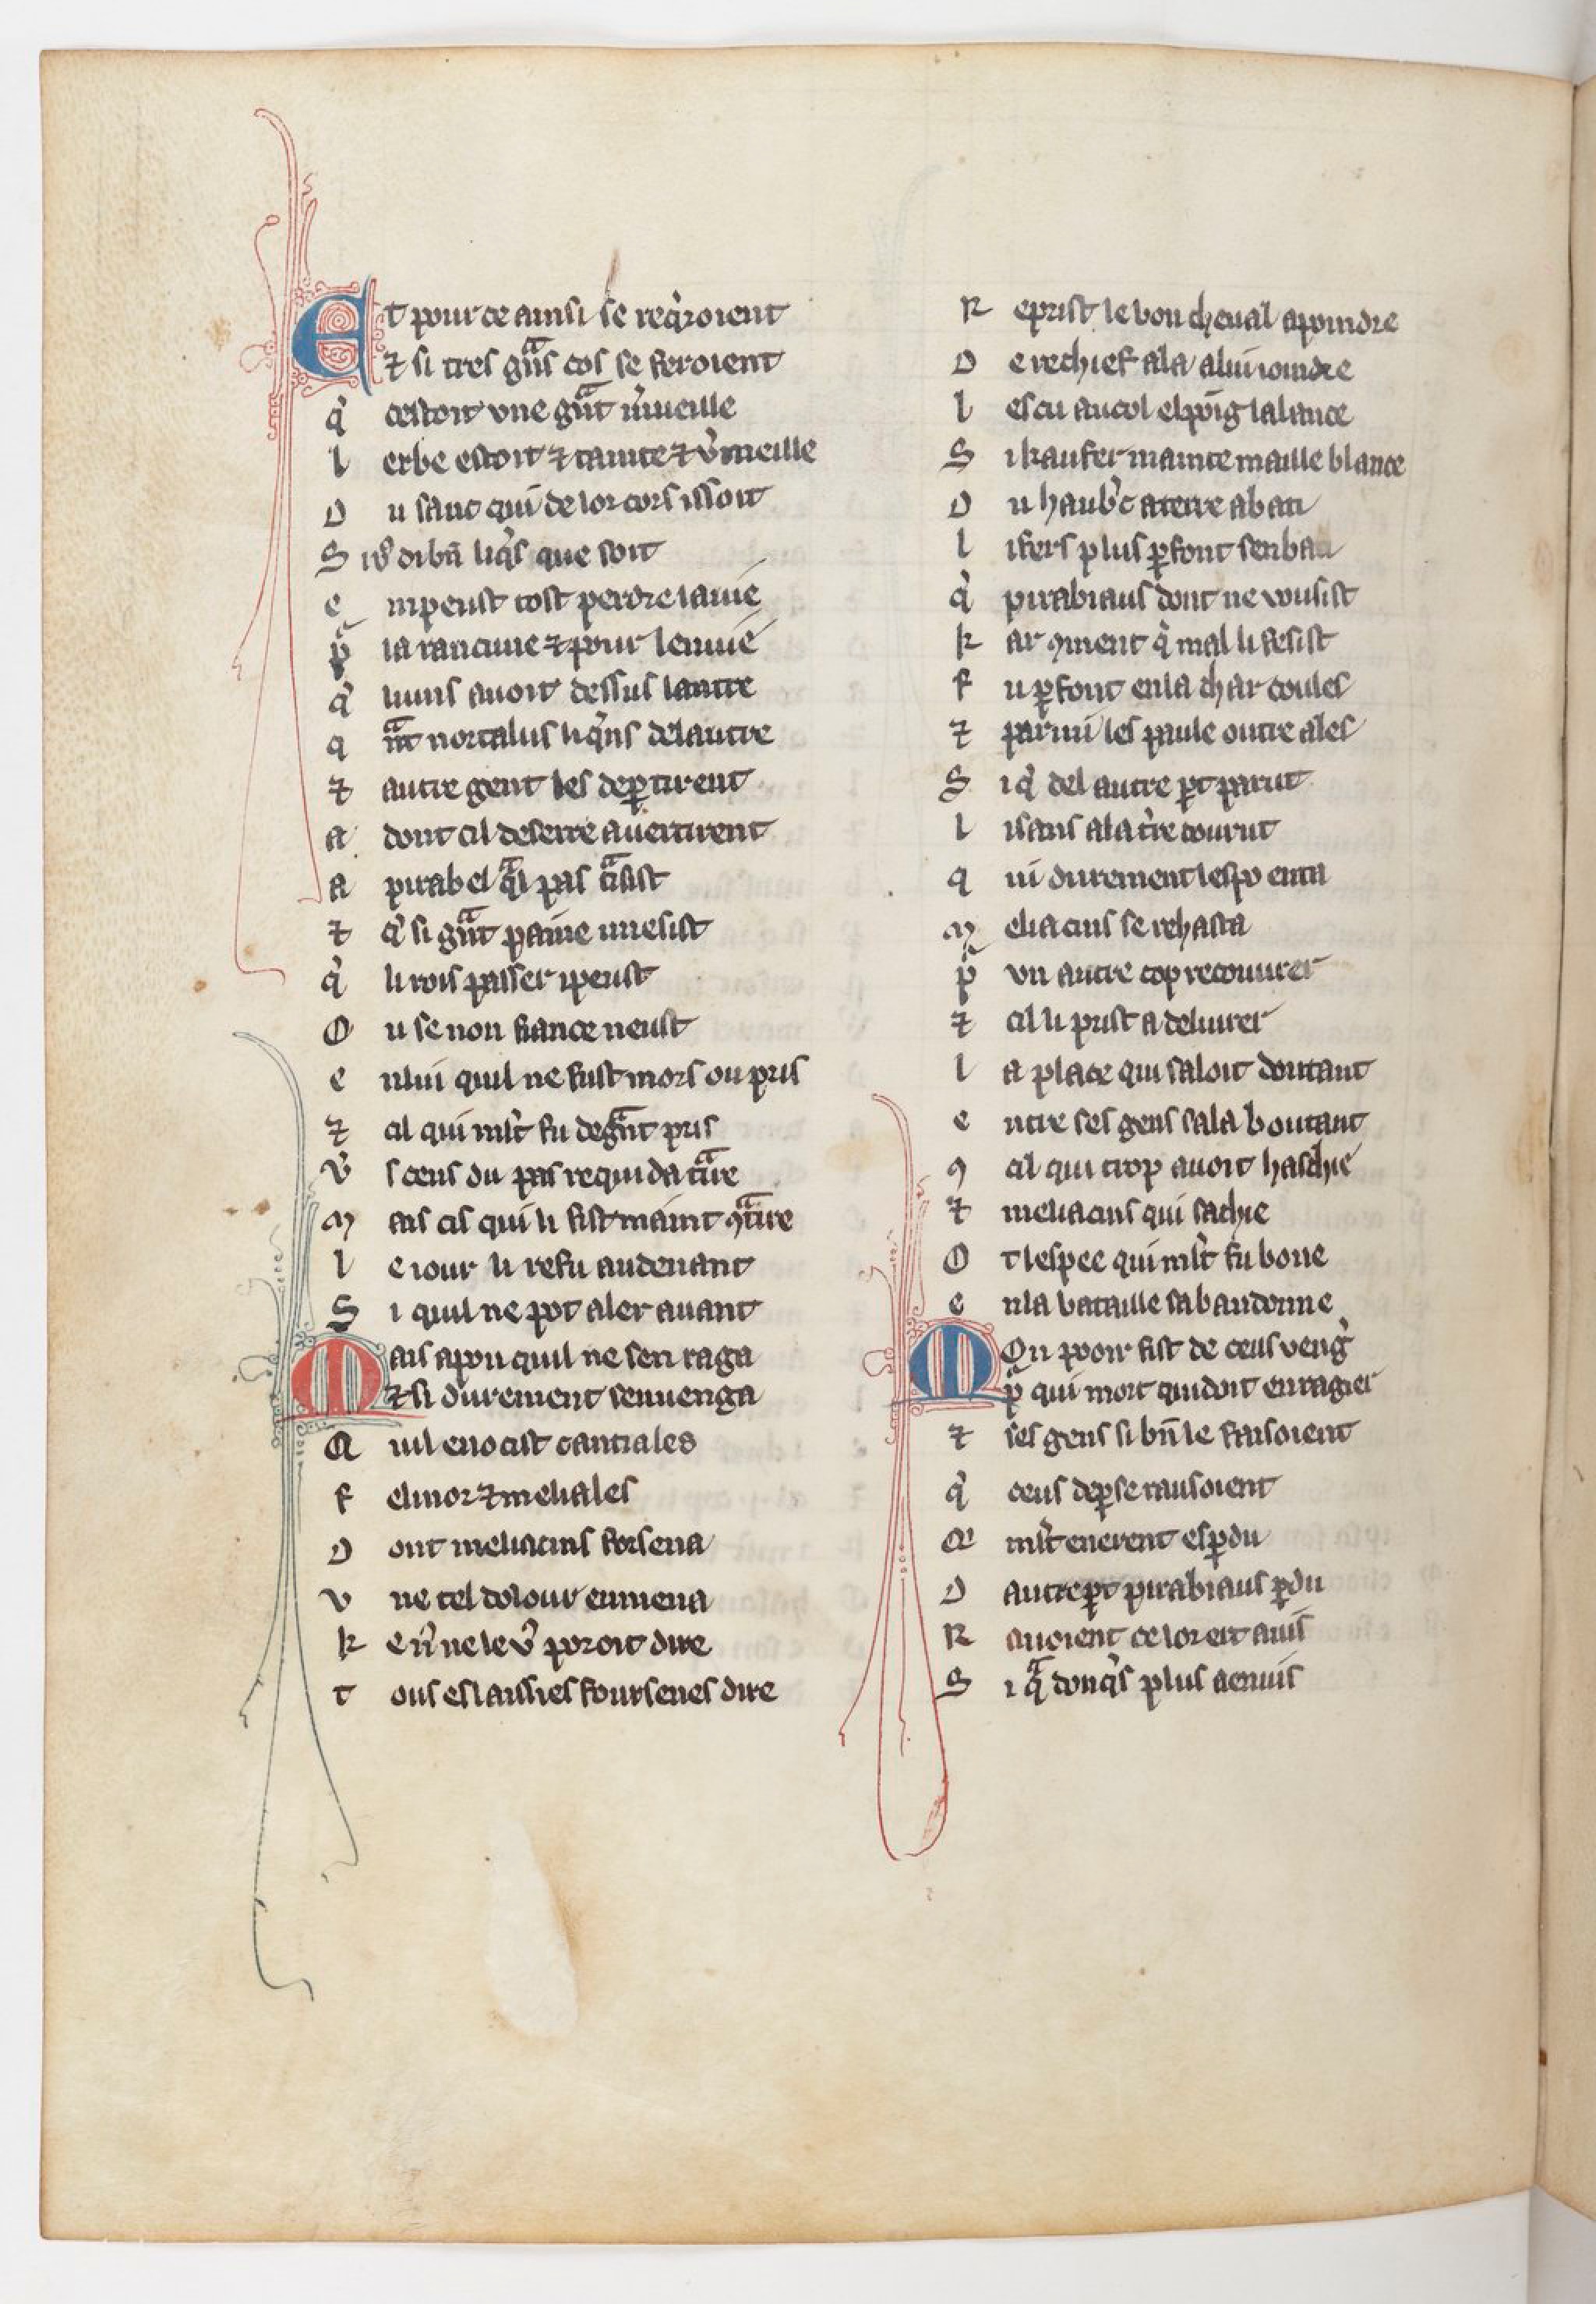 Et pour ce ainsi se req̾roient
⁊ si tres gͣns cos se feroient
q̾ cestoit vne gͣnt m̾ueille
l erbe estoit ⁊ tainte ⁊ v̾meille
D u sanc qui de lor cors issoit
e npeust tost perdre la uie
p̾ la rancune ⁊ pour lenuie
q̾ luns auoit dessus lautre
q ͣnt nortalus li q̾ns delautre
⁊ autre gent les deꝑtirent
a dont cil deserre auertirent
a pirabel qͣl pas cͣisist
⁊ q̾ si gͣnt paine mesist
q̾ li rois passer ipeust
O u se non fiance neust
e nlui quil ne fust mors ou pris
⁊ cil qui mlt̾ fu de gͣnt pris
v̾ s ceus du pas requida tͣire
M ais cis qui li fist maint ꝯtͣire
l e iour li refu audeuant
S i quil ne pot aler auant
Mais a pou quil ne sen raga
⁊ si durement senuenga
Q uil enocist cantiales
F elinor ⁊ meliales
D ont meliacins forsena
v ne tel dolour enmena
K e n̾ ne le v̾ poroit dire
t ous eslaissies foursenes dire
R eprist le bon cheual a poindre
D e rechief ala a lui ioindre
l escu au col el poīg la lance
S i kau fer mainte maille blance
D u haub̾c a terre abati
l i fers plus ꝑfont senbati
q̾ pirabiaus dont ne vousist
k ar ꝯment q̾ mal li fesist
F u ꝑfont en la char coules
⁊ parmi les paule outre ales
S i q̾ del autre ꝑt parut
l i sans a la t̾re courut
q ui durement lespo enta
M eliacins se rehasta
p̾ vn autre cop recouurer
⁊ cil li prist a deliurer
l a place qui saloit doutant
e ntre ses gens sala boutant
ꝯ cil qui trop auoit haschie
⁊ meliacins qui sachie
O t lespee qui mlt̾ fu bone
e nla bataille sabandonne
MOn pooir fist de ceus veng̾
p̾ qui mort quidoit enragier
⁊ ses gens si bn̄ le faisoient
q̾ ceus deꝑse rausoient
Q mlt̾ enerent esꝑdu
D autre ꝑt pirabiaus ꝑdu
R auoient ce lor ert auis
S i qͣ donq̾s plus a enuis